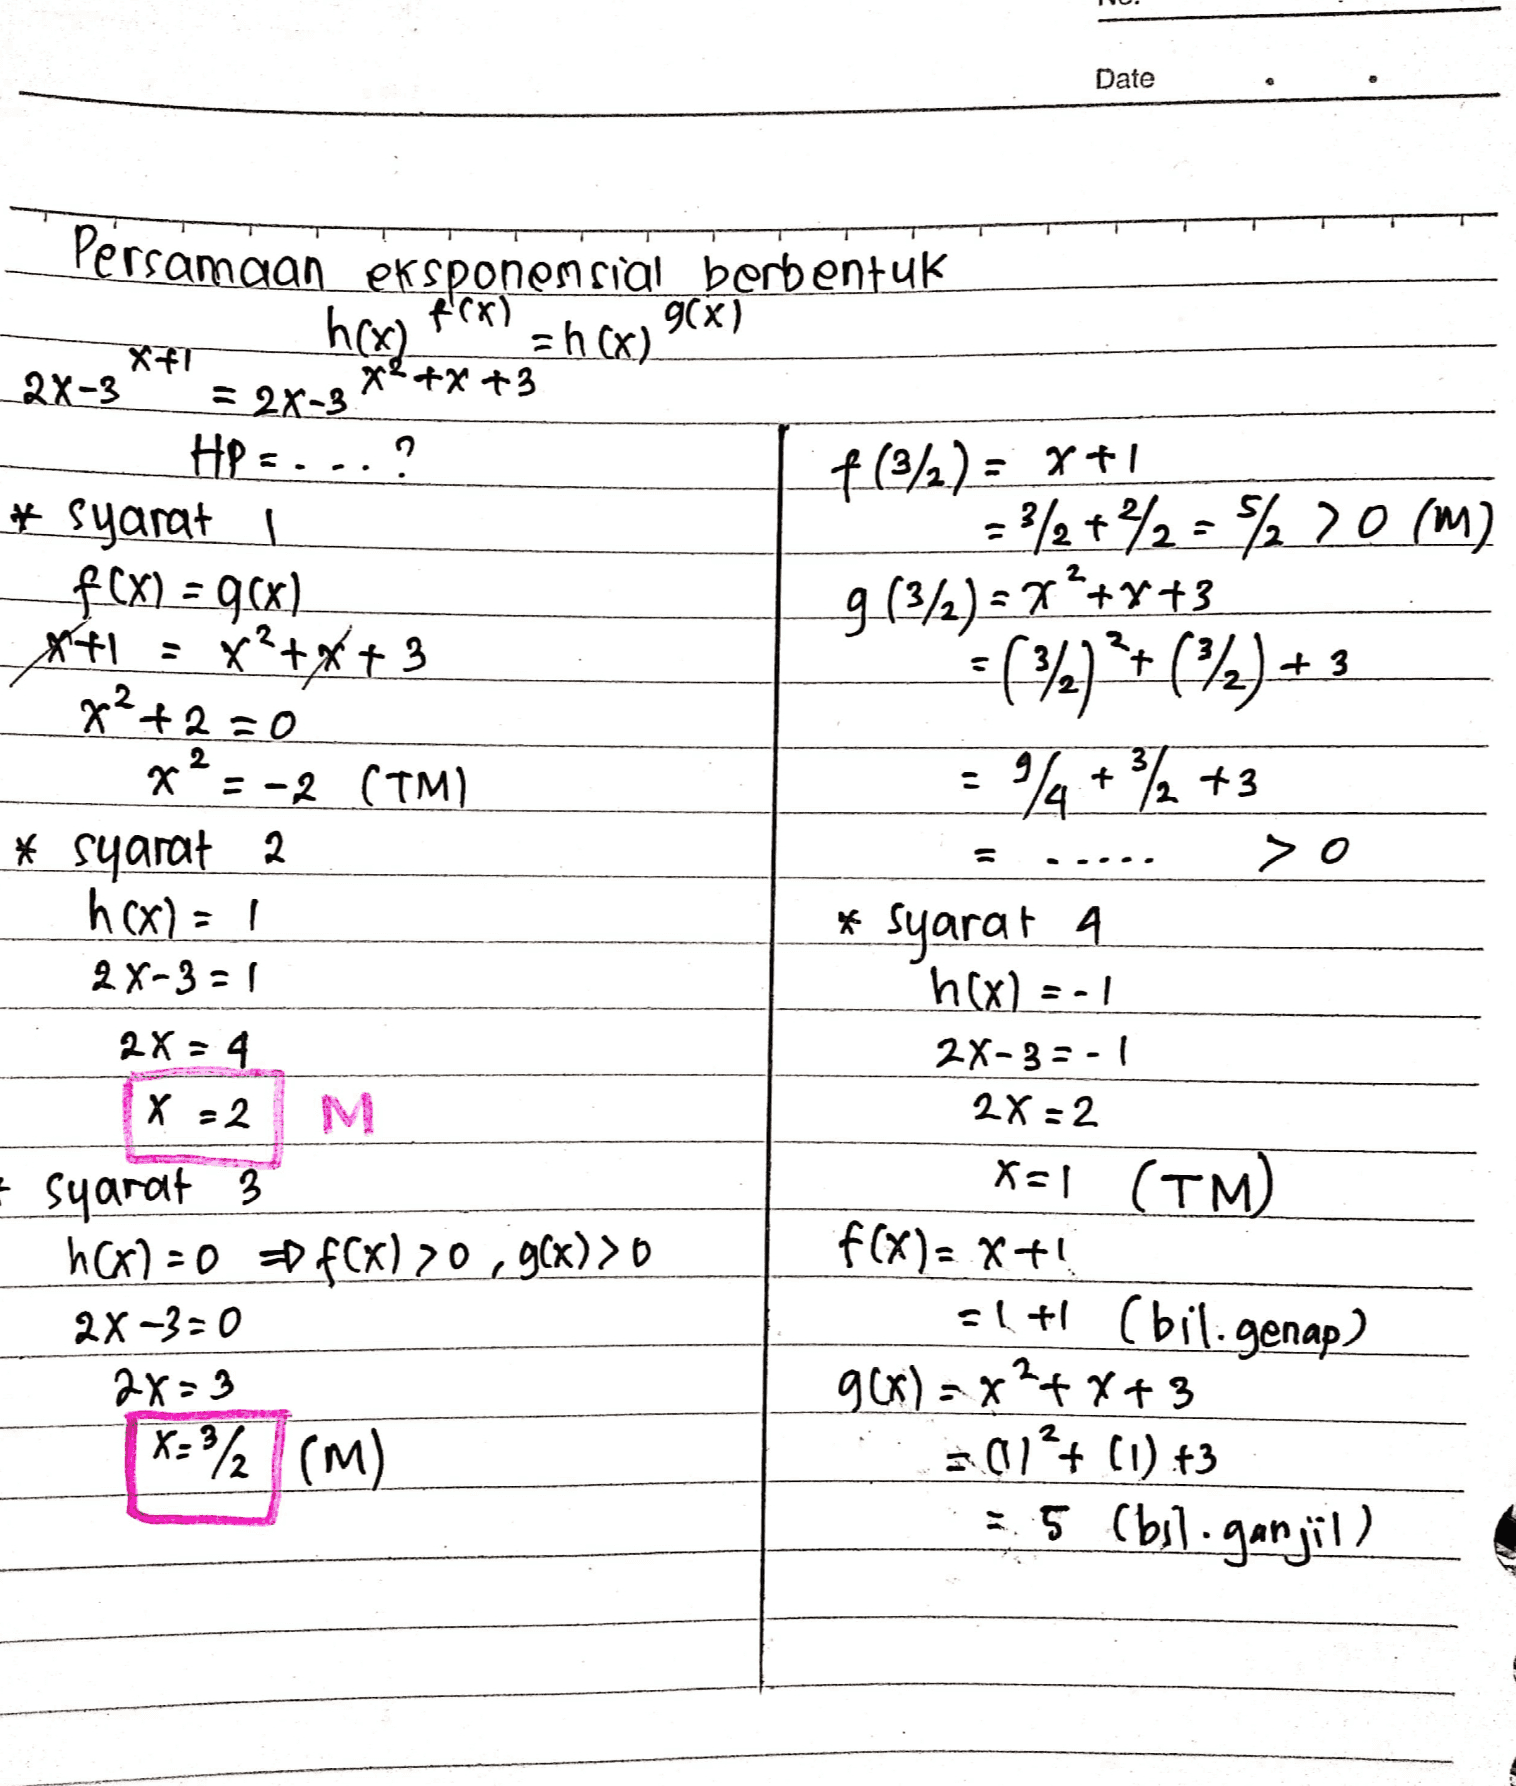 Date
Persamaan eksponensial berbentuk
h(x)^f(x) = h(x)^g(x)
2x-3^x+1 = 2x-3^x²+x+3
HP = .... ?
* syarat 1
f(x) = g(x)
x+1 = x²+x+3
x²+2 = 0
x² = -2 (TM)
* syarat 2
h(x) = 1
2x-3 = 1
2x = 4
x = 2 M
* syarat 3
h(x) = 0 ⇒ f(x) > 0, g(x) > 0
2x-3 = 0
2x = 3
x = 3/2 (M)
f(3/2) = x+1
= 3/2 + 2/2 = 5/2 > 0 (M)
g(3/2) = x²+x+3
= (3/2)² + (3/2) + 3
= 9/4 + 3/2 + 3
= ..... > 0
* syarat 4
h(x) = -1
2x-3 = -1
2x = 2
x = 1 (TM)
f(x) = x+1
= 1+1 (bil. genap)
g(x) = x²+x+3
= (1)² + (1) + 3
= 5 (bil. ganjil)